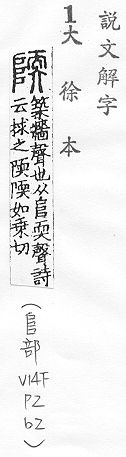 説文解字
1大徐本
陾
築牆聲也从𨸏耎聲詩
云捄之陾陾如乘切
(𨸏部
V14F
P2
b2)